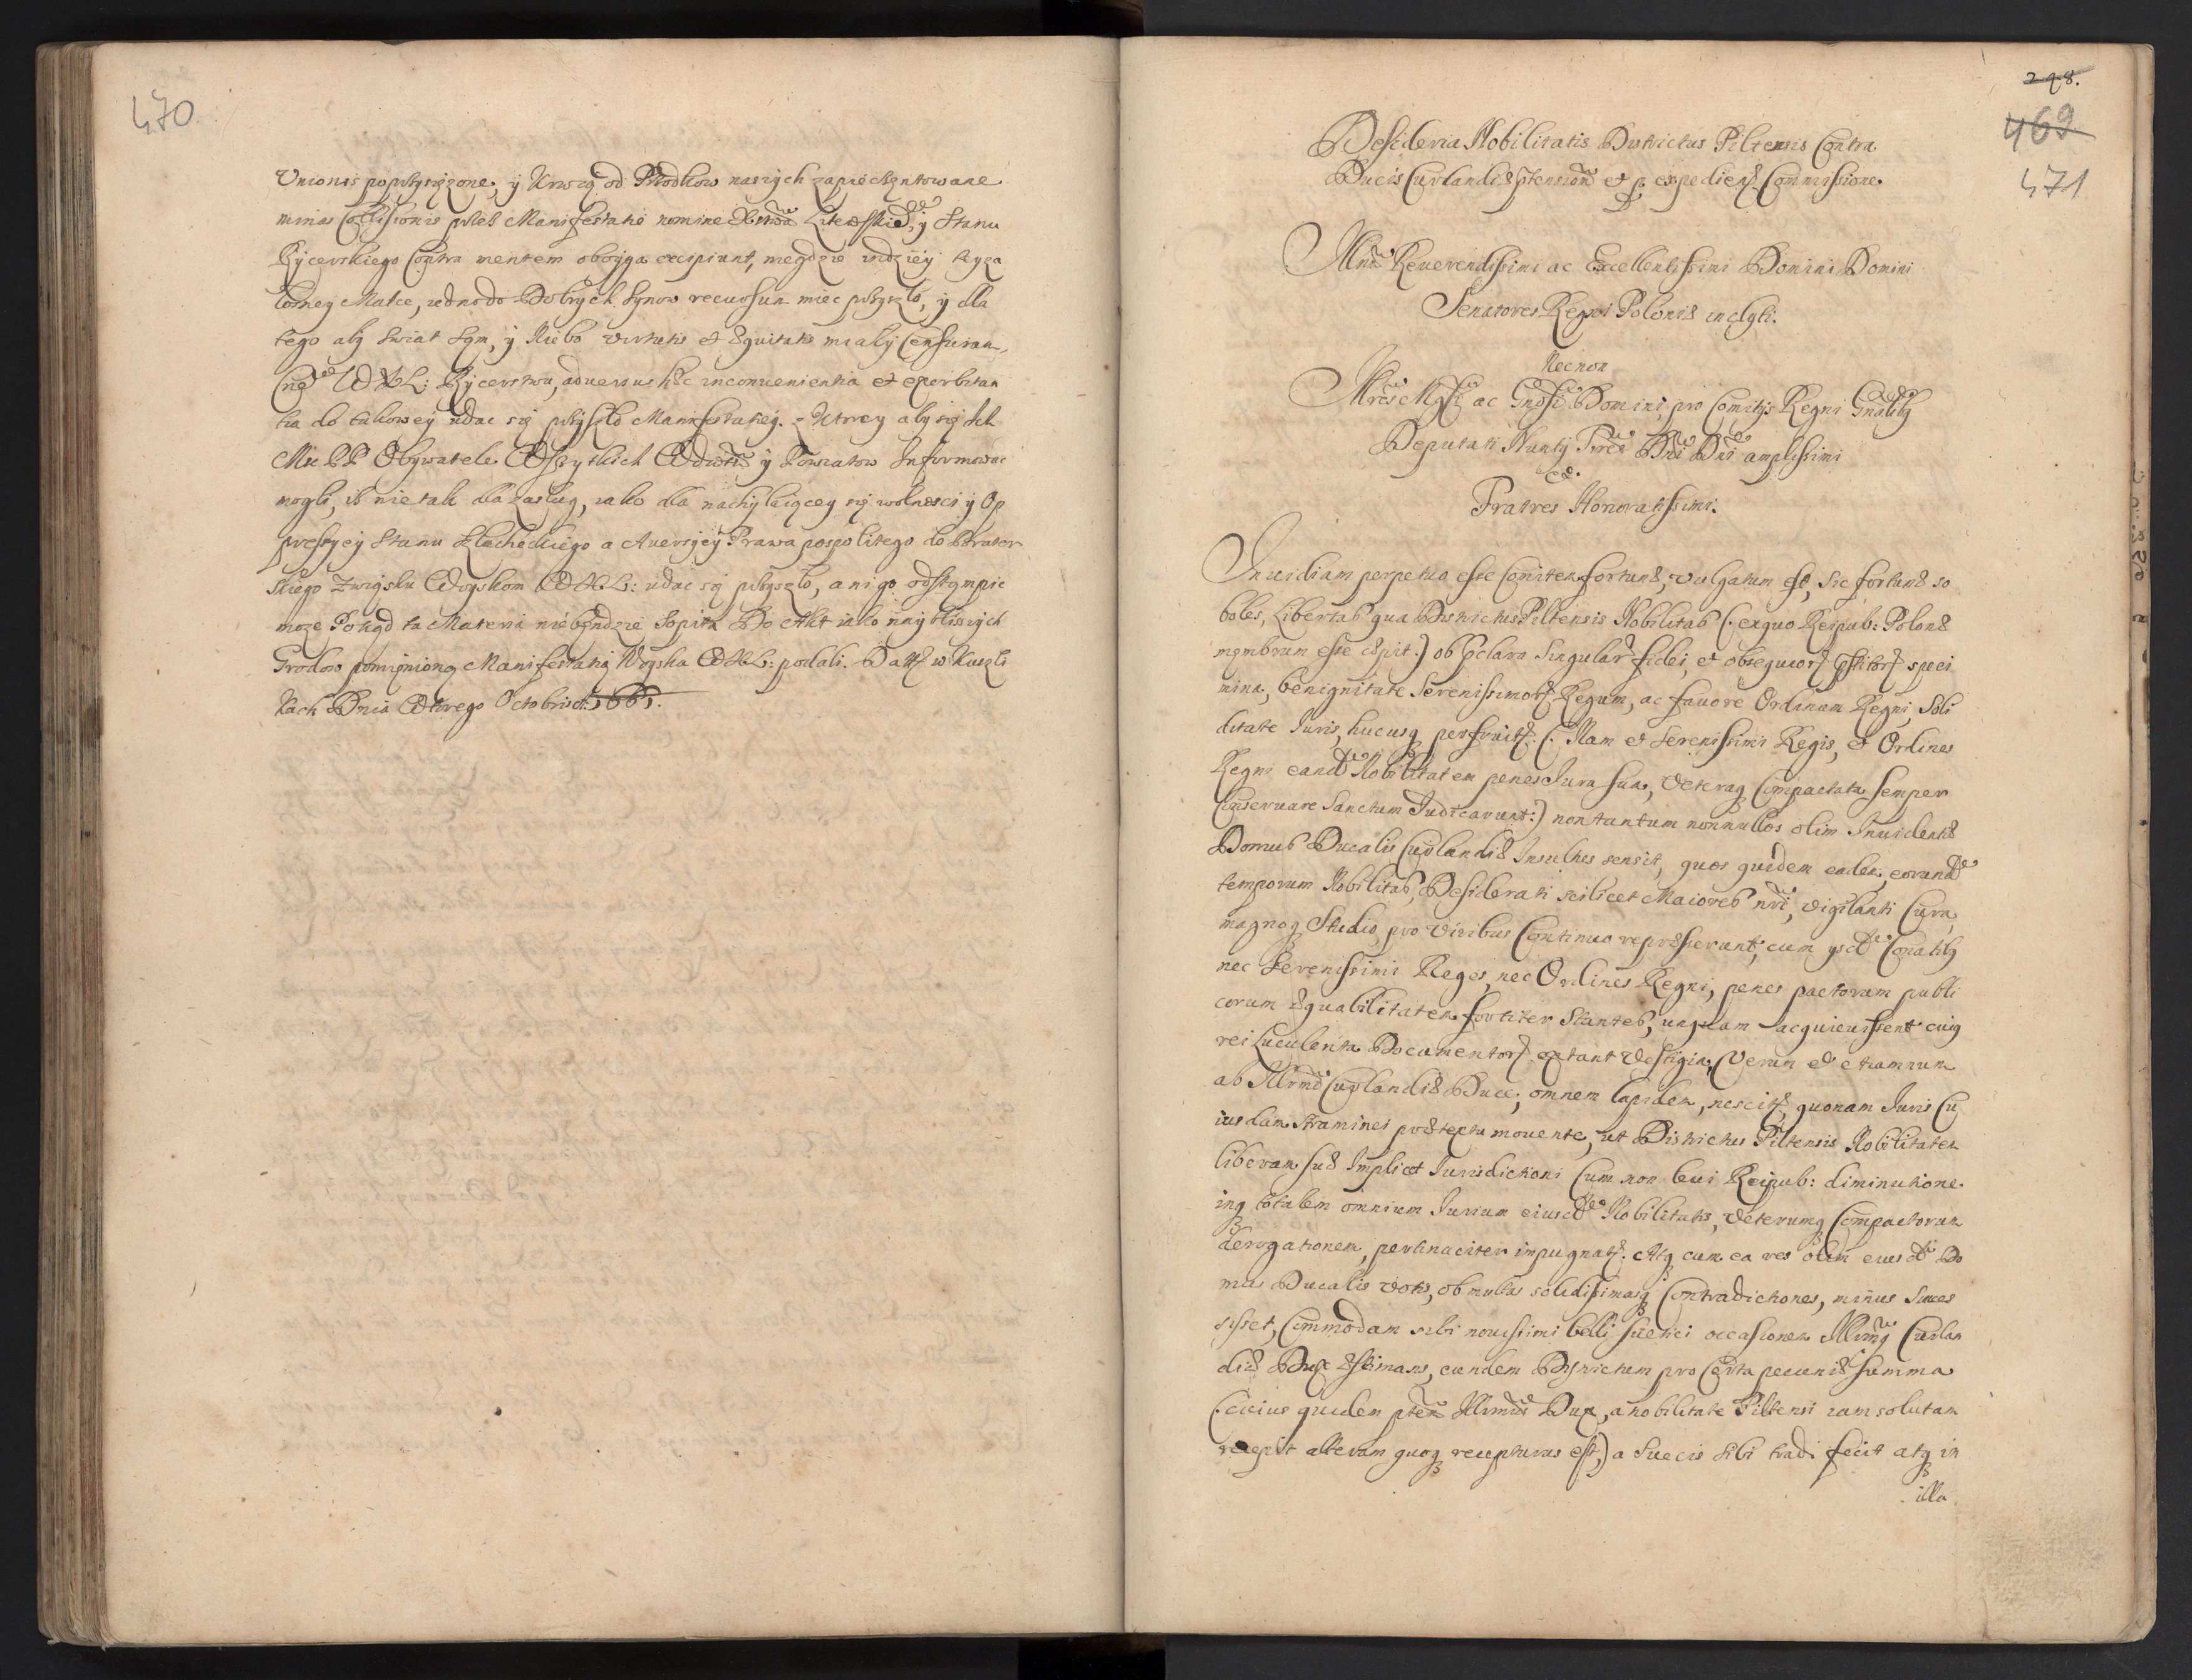 470
Unionis poprzysięzone, y Krwią od Przodkow naszych zapieczętowane
minas Collisionis przez Manifestatio nomine Litewskie, y Stanu
Rycerskiego Contra mentem oboyga excipiunt, niegdzie indziey tey za
łosney Matce, iedno do Dobrych Synow recursum miec przyszło, y dla
tego aby swiat tym, y Niebo virtutis et Æquitatis miały Censuram,
WXL: Rycerstwu, adversus hæc inconvenientia et exorbitan
tia do takowey udac się przyszło Manifestatiey. Ktorey aby się Ich
Msc PP Obywatele Wszytkich y Powiatow Informowac
mogli, iż nie tak dla zasług, iako dla nachylaiącey się wolnosci y Op
pressyey Stanu Szlacheckiego a Aversyey Prawa pospolitego do Brater
skiego Związku Woyskom WXL: udac się przyszło, a ni go odstąmpic
moze Pokąd ta Materia niebęndzie Sopita Do Akt iako nayblisszych
Grodow pomienioną Manifestatią Woysko WXL: podali. Datt w Kuszli
kach Dnia Wtorego Octobris 1661.
298.
469
471
Desideria Nobilitatis Districtus Piltensis Contra
Ducis Curlandiæ ptension et p. expedien Commissione
Illmi Reverendissimi ac Excellentissimi Domini Domini
Senatores Regni Poloniæ inclyti.
Necnon
Illres Mgfi ac Gnosi Domini pro Comitijs Regni Gnalibq
Deputati Nuntij Trres Dni Dni amplissimi
Fratres Honoratissimi.
Invidiam perpetuo esse Comitem fortunæ, vulgatum est, Sic fortunæ so
boles, Libertas qua Districtus Piltensis Nobilitas (: ex quo Reipub: Polonæ
membrum esse cæpit:) ob pclara Singular fidei, et obsequior pstitor speci
mina, benignitate Serenissimor Regum, ac favore Ordinum Regni, Soli
ditate Iuris, hucusq perfruit: (: Nam et Serenissimi Regis, et Ordines
Regni eand Nobilitatem penes Iura Sua, veteraq Compactata semper
Conservare Sanctum Iudicarunt:) non tantum nonnullos olim Invidentis
Domus Ducalis Curlandiæ Insultus sensit, quos quidem eadem, eorund
temporum Nobilitas, Desiderati scilicet Maiores nri, vigilanti Cura,
magnoq Studio, pro viribus Continuo repræsserunt, cum ysd Conatibq
nec Serenissimi Reges, nec Ordines Regni, penes pactorum publi
corum æquabilitatem fortiter Stantes, unquam acquievissent cuiq
rei Luculenta Documentor extant vestigia, Verum et etiamnum
ab Illrmo Curlandiæ Duce, omnem lapidem, nescit, quonam Iuris Cu
iusdam Straminei prætextu movente, ut Districtus Piltensis Nobilitatem
liberam suæ Implicet Iurisdictioni Cum non levi Reipub: diminutione
inq totalem omnium Iurium eiusd Nobilitatis, veterumq Compactorum
derogationem, pertinaciter impugnat. Atq cum ea res olim eiusd Do
mus Ducalis votis, ob multas solidissimasq Contradictiones, minus Succes
sisset, Commodam sibi novissimi belli Suetici occasionem Illrmq Curlan
diæ Dux æstimans, eundem Districtum pro Certa pecuniæ Summa
(: cuius quidem pten Illrmus Dux, a nobilitate Piltensi iam solutam
recepit alteram quoq recepturus est,) a Suecis sibi tradi fecit atq in
illa